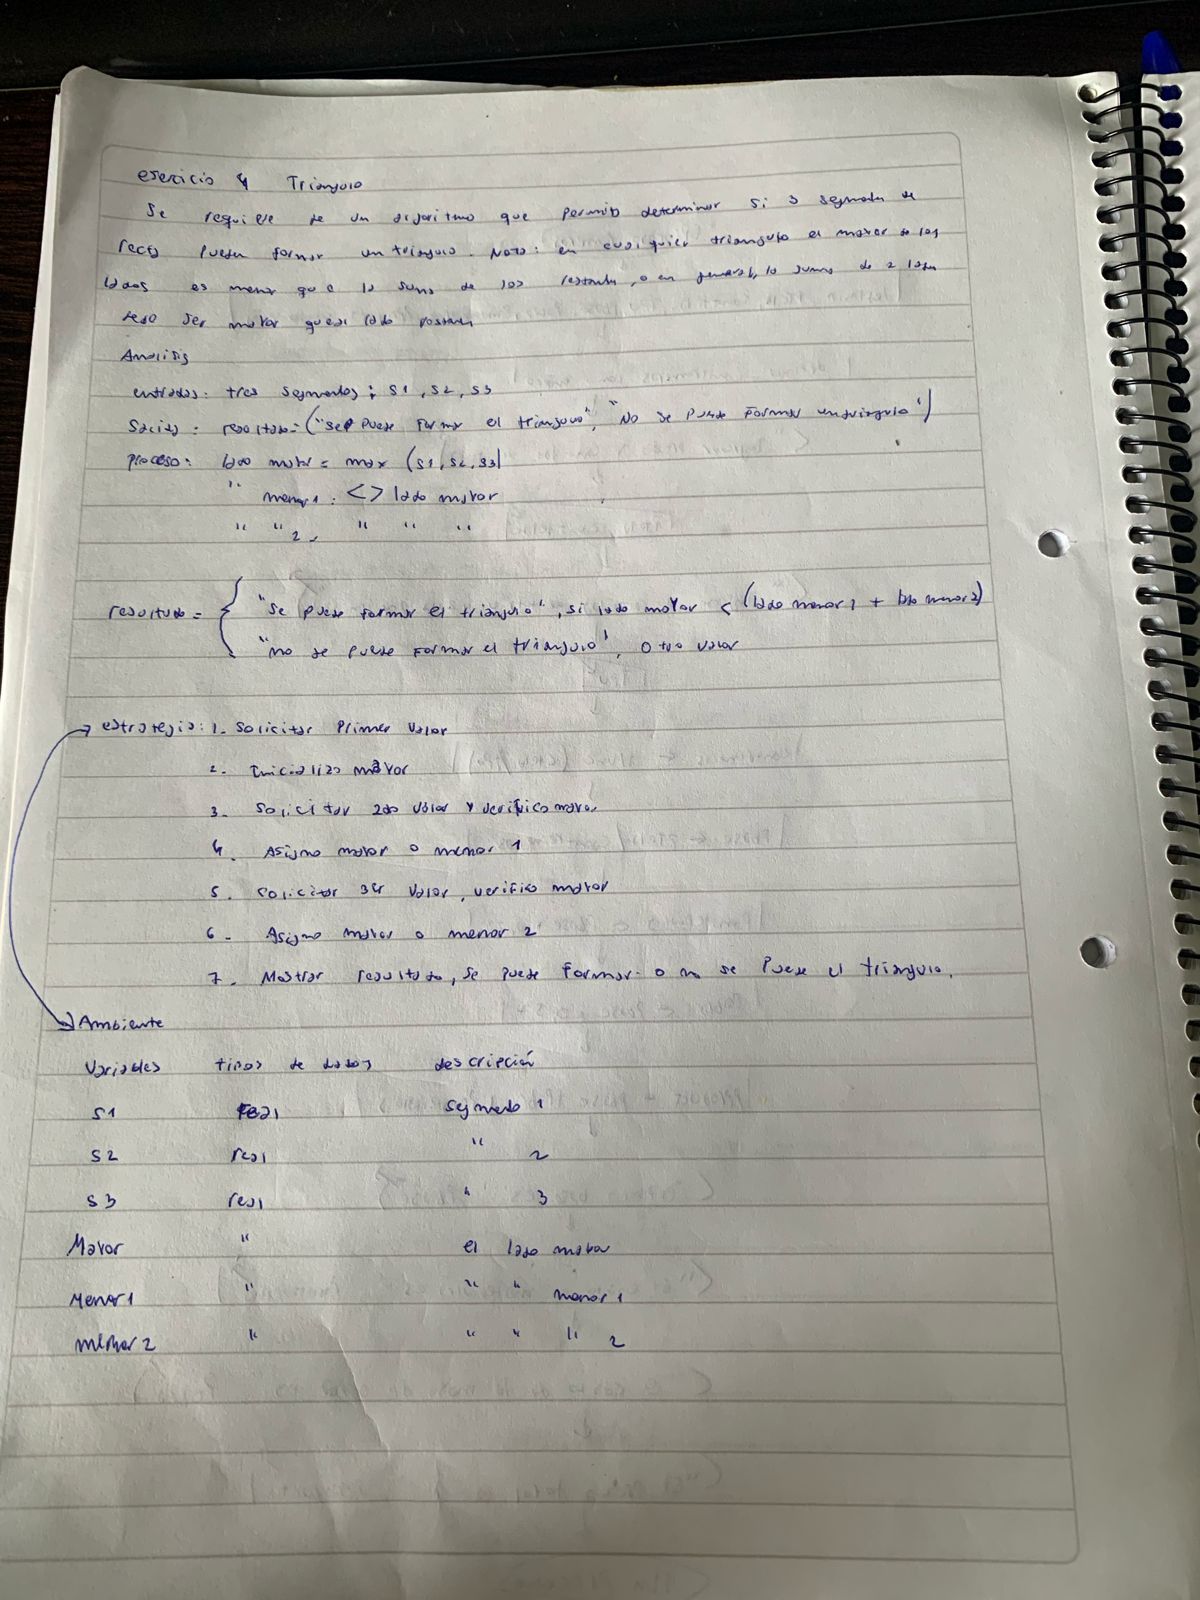 ejercicio 4 Triangulo
Se requiere de un algoritmo que permita determinar si 3 segmentos de
recta pueden formar un triangulo. Nota: en cualquier triangulo el mayor de los
lados es menor que la suma de los restantes, o en general, la suma de 2 lados
debe ser mayor que el lado restante
Analisis
entradas: tres segmentos; S1, S2, S3
Salida: resultado = ("Se puede formar el triangulo", "No se puede formar un triangulo")
proceso: lado mayor = max (S1, S2, S3)
" menor 1: <> lado mayor
" " 2, " " "
resultado = { "Se puede formar el triangulo", si lado mayor < (lado menor 1 + lado menor 2)
"no se puede formar el triangulo", otro valor
estrategia: 1. Solicitar Primer Valor
2. Inicializo mayor
3. Solicitar 2do valor y verifico mayor
4. Asigno mayor o menor 1
5. Solicitar 3er Valor, verifico mayor
6. Asigno mayor o menor 2
7. Mostrar resultado, se puede formar o no se puede el triangulo.
Ambiente
Variables tipos de datos descripción
S1 real segmento 1
S2 real " 2
S3 real " 3
Mayor " el lado mayor
Menor 1 " " " menor 1
menor 2 " " " " 2